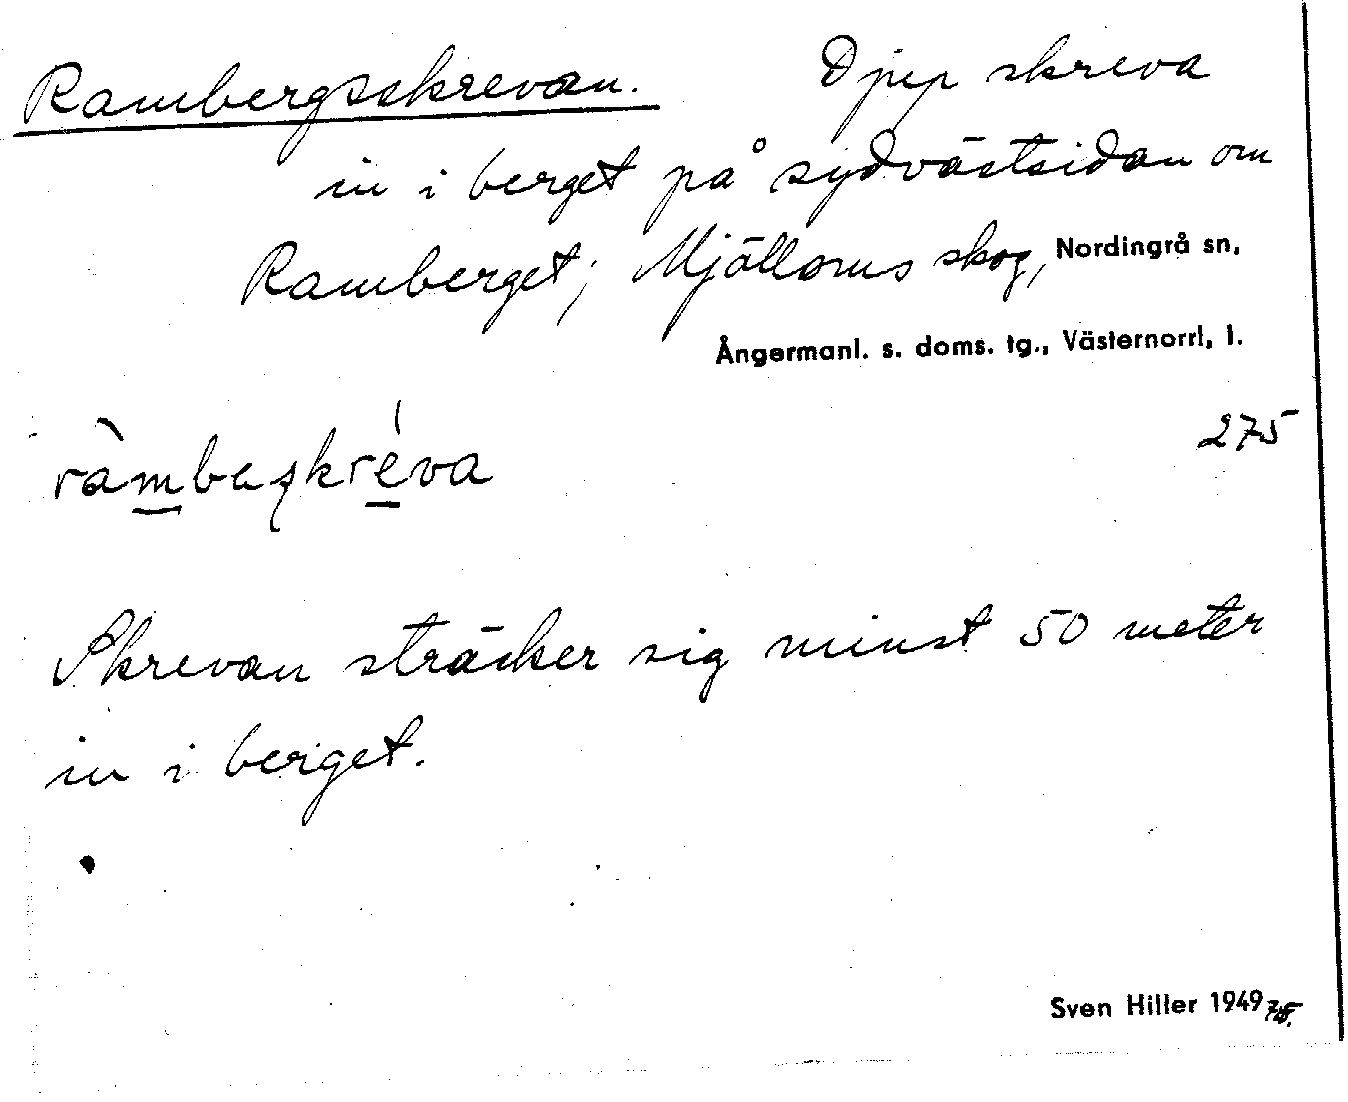 Rambergsskrevan. Djup skreva
in i berget på sydvästsidan om
Ramberget; Mjälloms skog, Nordingrå sn,
Ångermanl. s. doms. tg., Västernorrl, l.
275
Skrevan sträcker sig minst 50 meter
in i berget.
Sven Hiller 1949